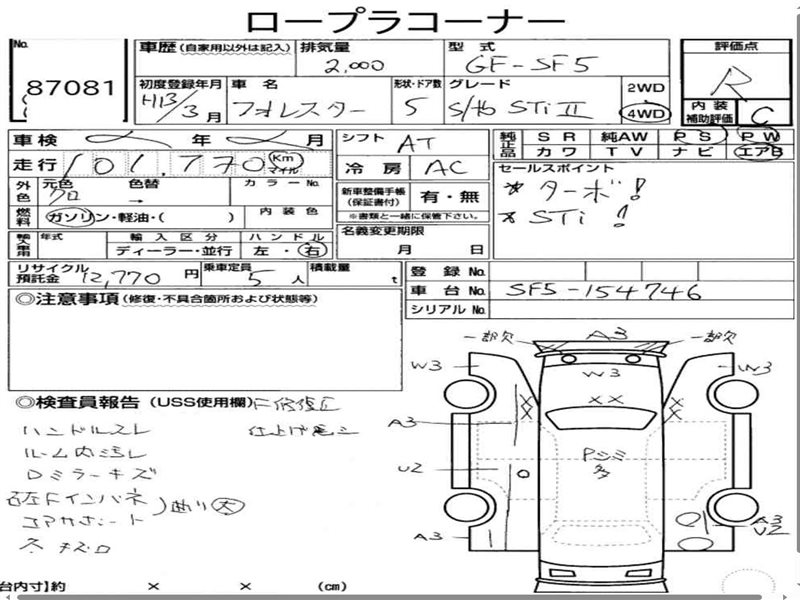 ロープラコーナー
No.
87081
車歴 (自家用以外は記入)
排気量
2,000
型式
GF-SF5
評価点
R
初度登録年月
H13/3月
車名
フォレスター
形状・ドア数
5
グレード
S/tb STi II
2WD
4WD
内装
補助評価
C
車検 年 月
シフト
AT
純正品
SR 純AW PS PW
カワ TV ナビ エアB
走行 101,770 Km
マイル
冷房
AC
セールスポイント
* ターボ!
* STi !
外色
元色
クロ
色替
→
カラーNo.
新車整備手帳
(保証書付)
有・無
※書類と一緒に保管下さい。
燃料
ガソリン・軽油・( )
内装色
名義変更期限
月 日
輸入車用
年式
輸入区分
ディーラー・並行
ハンドル
左・右
リサイクル
預託金
12,770円
乗車定員
5人
積載量
t
登録No.
車台No.
SF5-154746
シリアルNo.
◎注意事項(修復・不具合箇所および状態等)
◎検査員報告 (USS使用欄)
F修復正
ハンドルスレ
仕上げ悪シ
ルーム内汚レ
Dミラーキズ
右左Fインパネ
コアサポート
曲り 大
一部欠
A3
一部欠
W3
W3
W3
××
A3
Pシミ
多
U2
A3
A3
U2
台内寸】約 × × (cm)